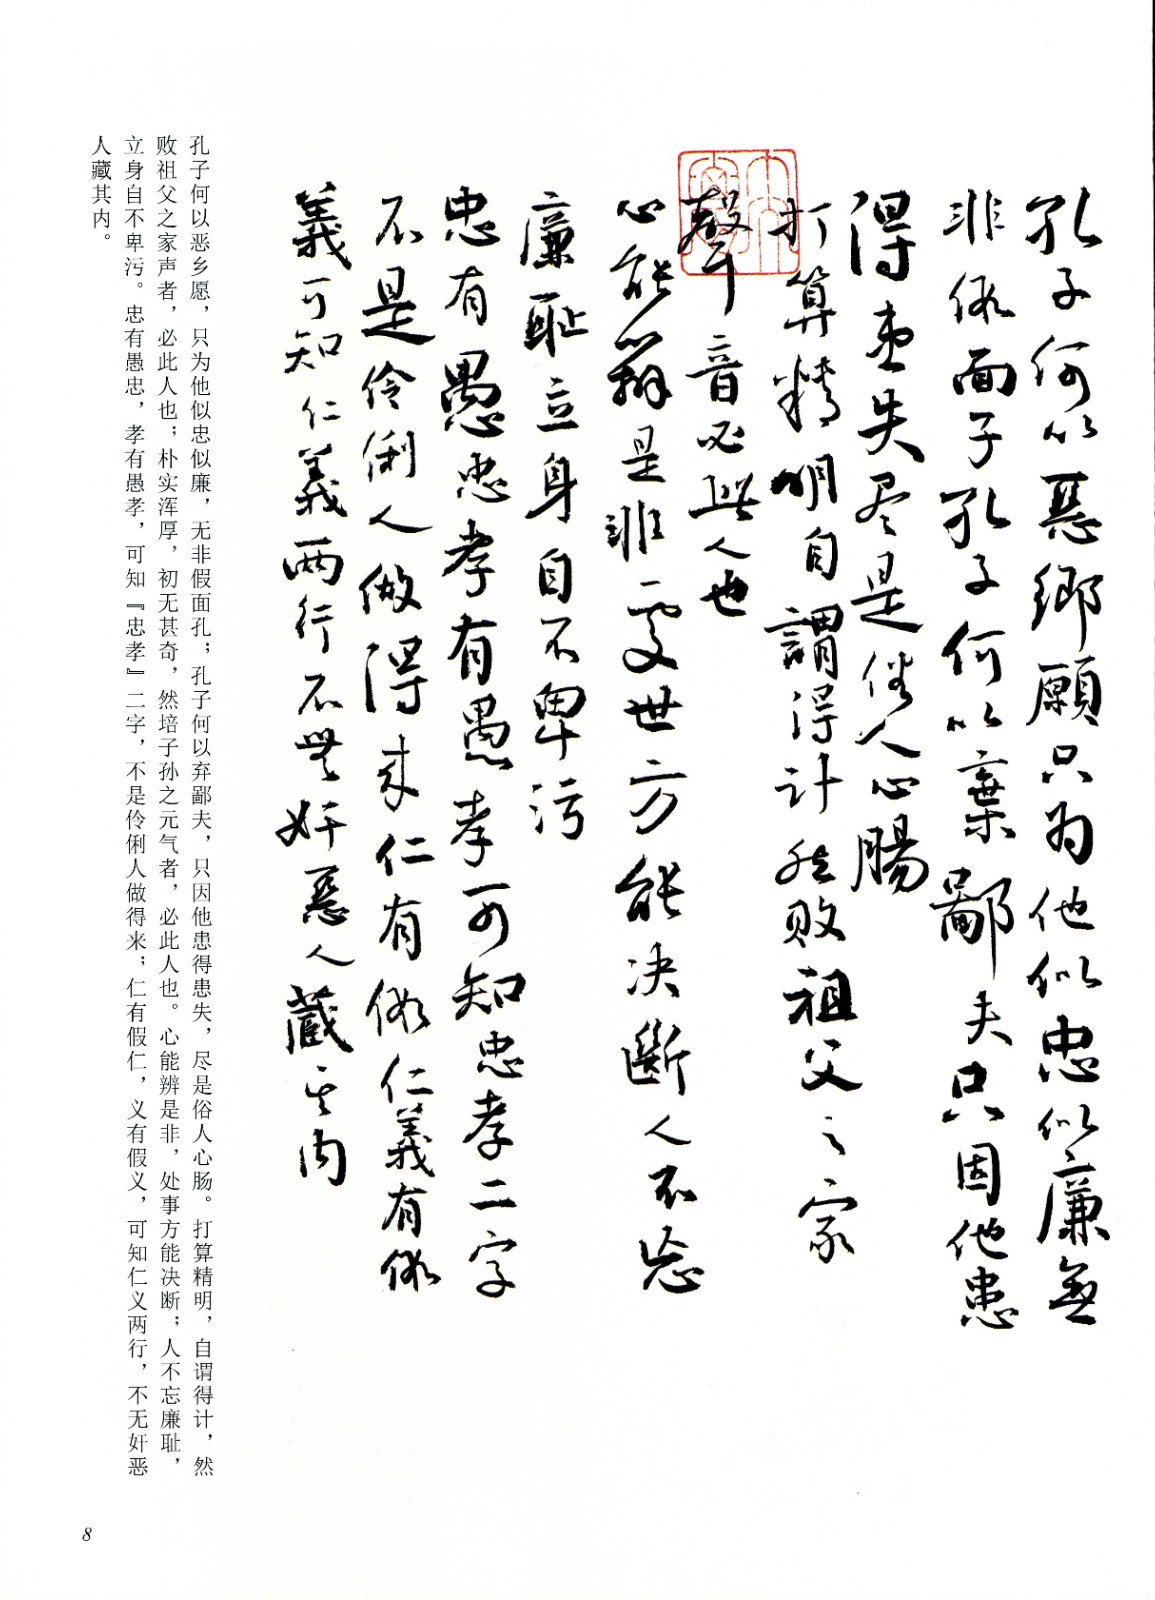 孔子何以惡鄉願只为他似忠似廉無
非假面子孔子何以棄鄙夫只因他患
得患失尽是俗人心腸
打算精明自謂得計然败祖父之家
聲音必此人也
心能辨是非處世方能决斷人不忘
廉恥立身自不卑污
忠有愚忠孝有愚孝可知忠孝二字
不是伶俐人做得来仁有假仁義有假
義可知仁義两行不無奸惡人藏其内
孔子何以恶乡愿，只为他似忠似廉，无非假面孔；孔子何以弃鄙夫，只因他患得患失，尽是俗人心肠。打算精明，自谓得计，然
败祖父之家声者，必此人也；朴实浑厚，初无甚奇，然培子孙之元气者，必此人也。心能辨是非，处事方能决断；人不忘廉耻，
立身自不卑污。忠有愚忠，孝有愚孝，可知『忠孝』二字，不是伶俐人做得来；仁有假仁，义有假义，可知仁义两行，不无奸恶
人藏其内。
8